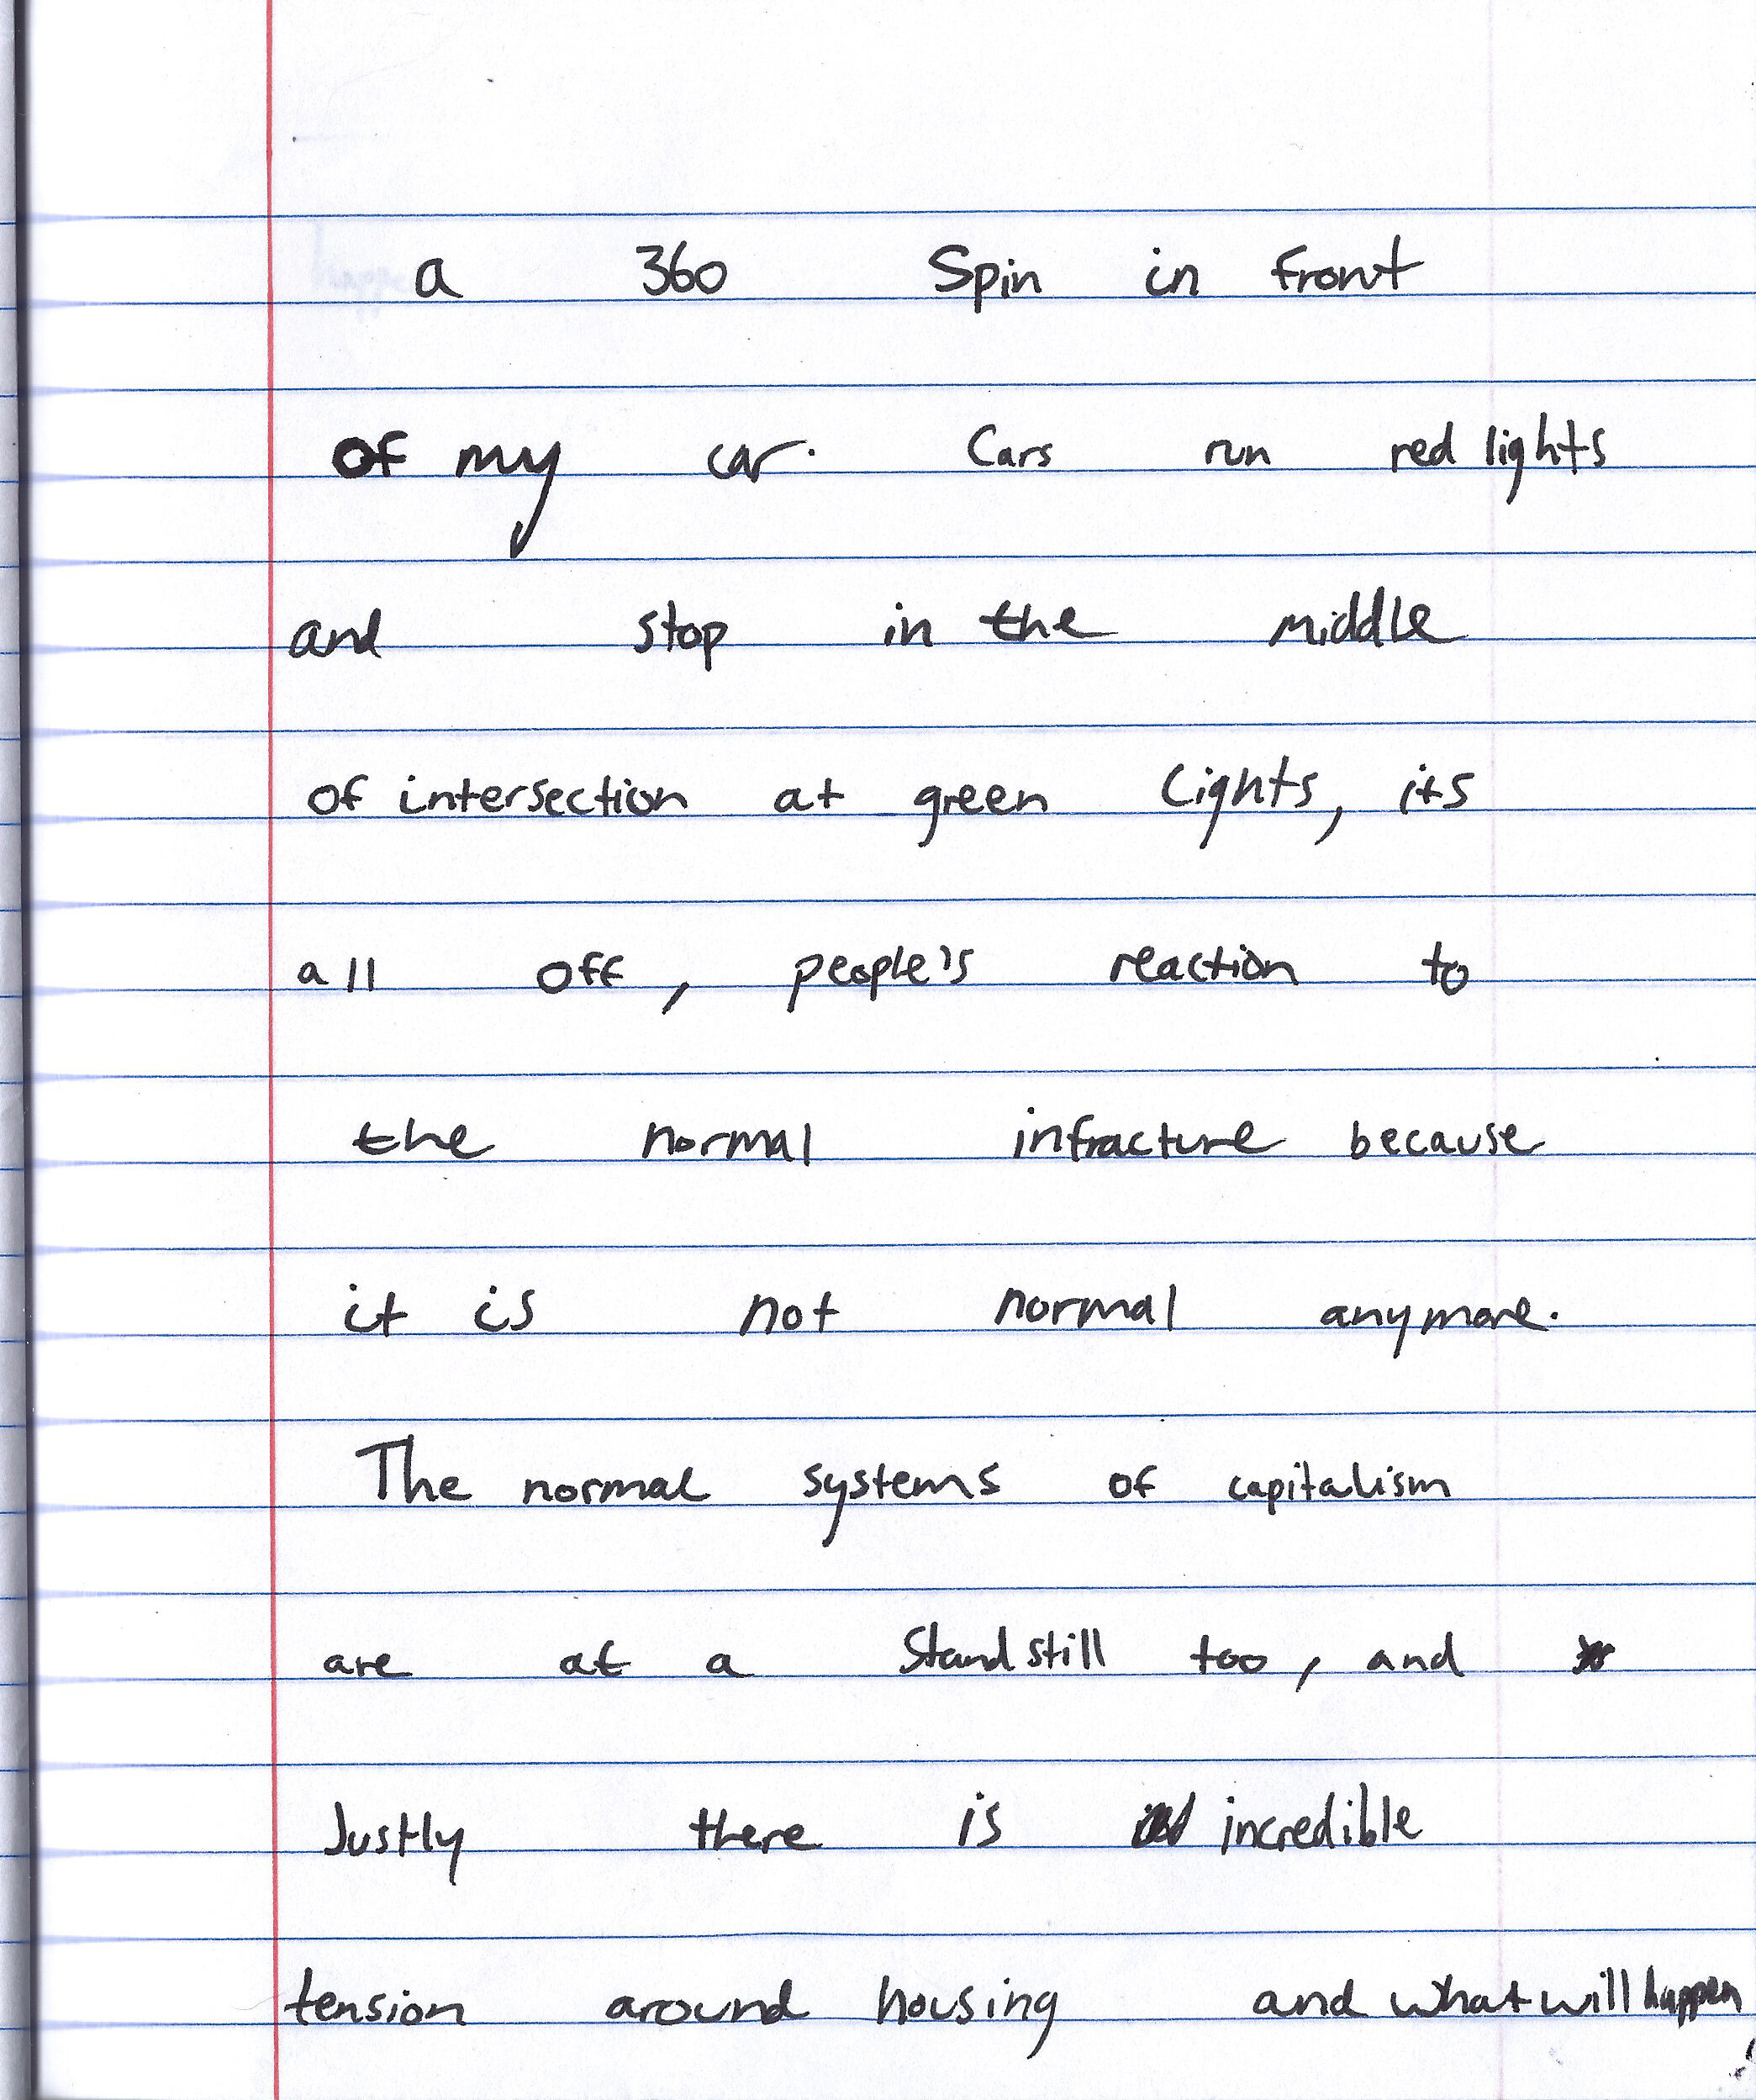 a 360 Spin in front
of my car. Cars run red lights
and stop in the middle
of intersection at green Lights, its
all off, people's reaction to
the normal infracture because
it is not normal anymore.
The normal systems of capitalism
are at a Standstill too, and
Justly there is incredible
tension around housing and what will happen